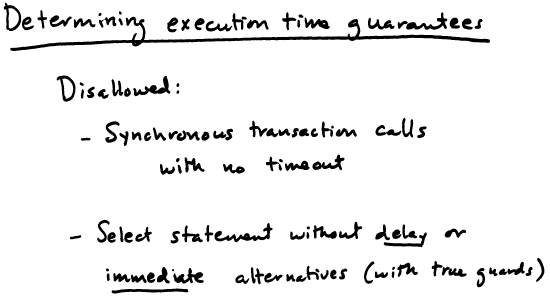 Determining execution time guarantees
Disallowed:
- Synchronous transaction calls
with no timeout
- Select statement without delay or
immediate alternatives (with true guards)